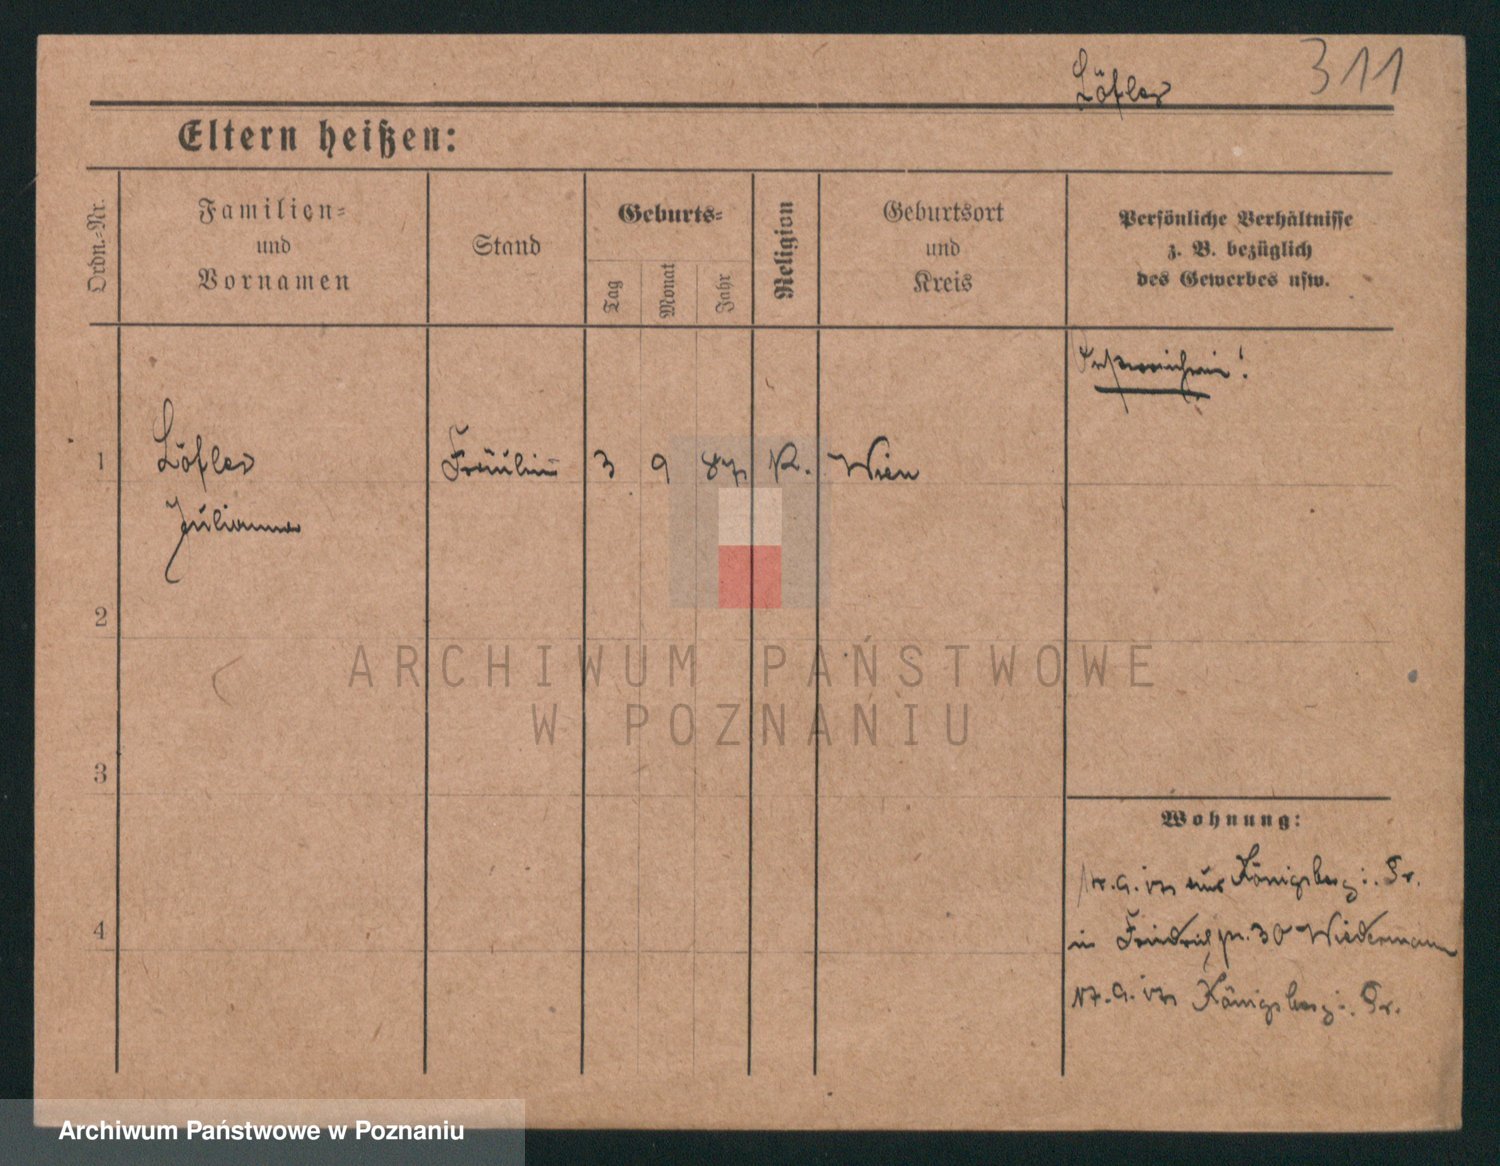 Löfler
311
Eltern heißen:
Ordn.-Nr.
Familien-
und
Vornamen
Stand
Geburts-
Tag
Monat
Jahr
Religion
Geburtsort
und
Kreis
Persönliche Verhältnisse
z. B. bezüglich
des Gewerbes usw.
1
Löfler
Julianna
Fräulein
3
9
87
K.
Wien
2
3
4
Wohnung:
aus Königsberg i. Pr.
in Friedrichstr. 30 Wiedermann
17. 9. 07 Königsberg i. Pr.
ARCHIWUM PAŃSTWOWE
W POZNANIU
Archiwum Państwowe w Poznaniu